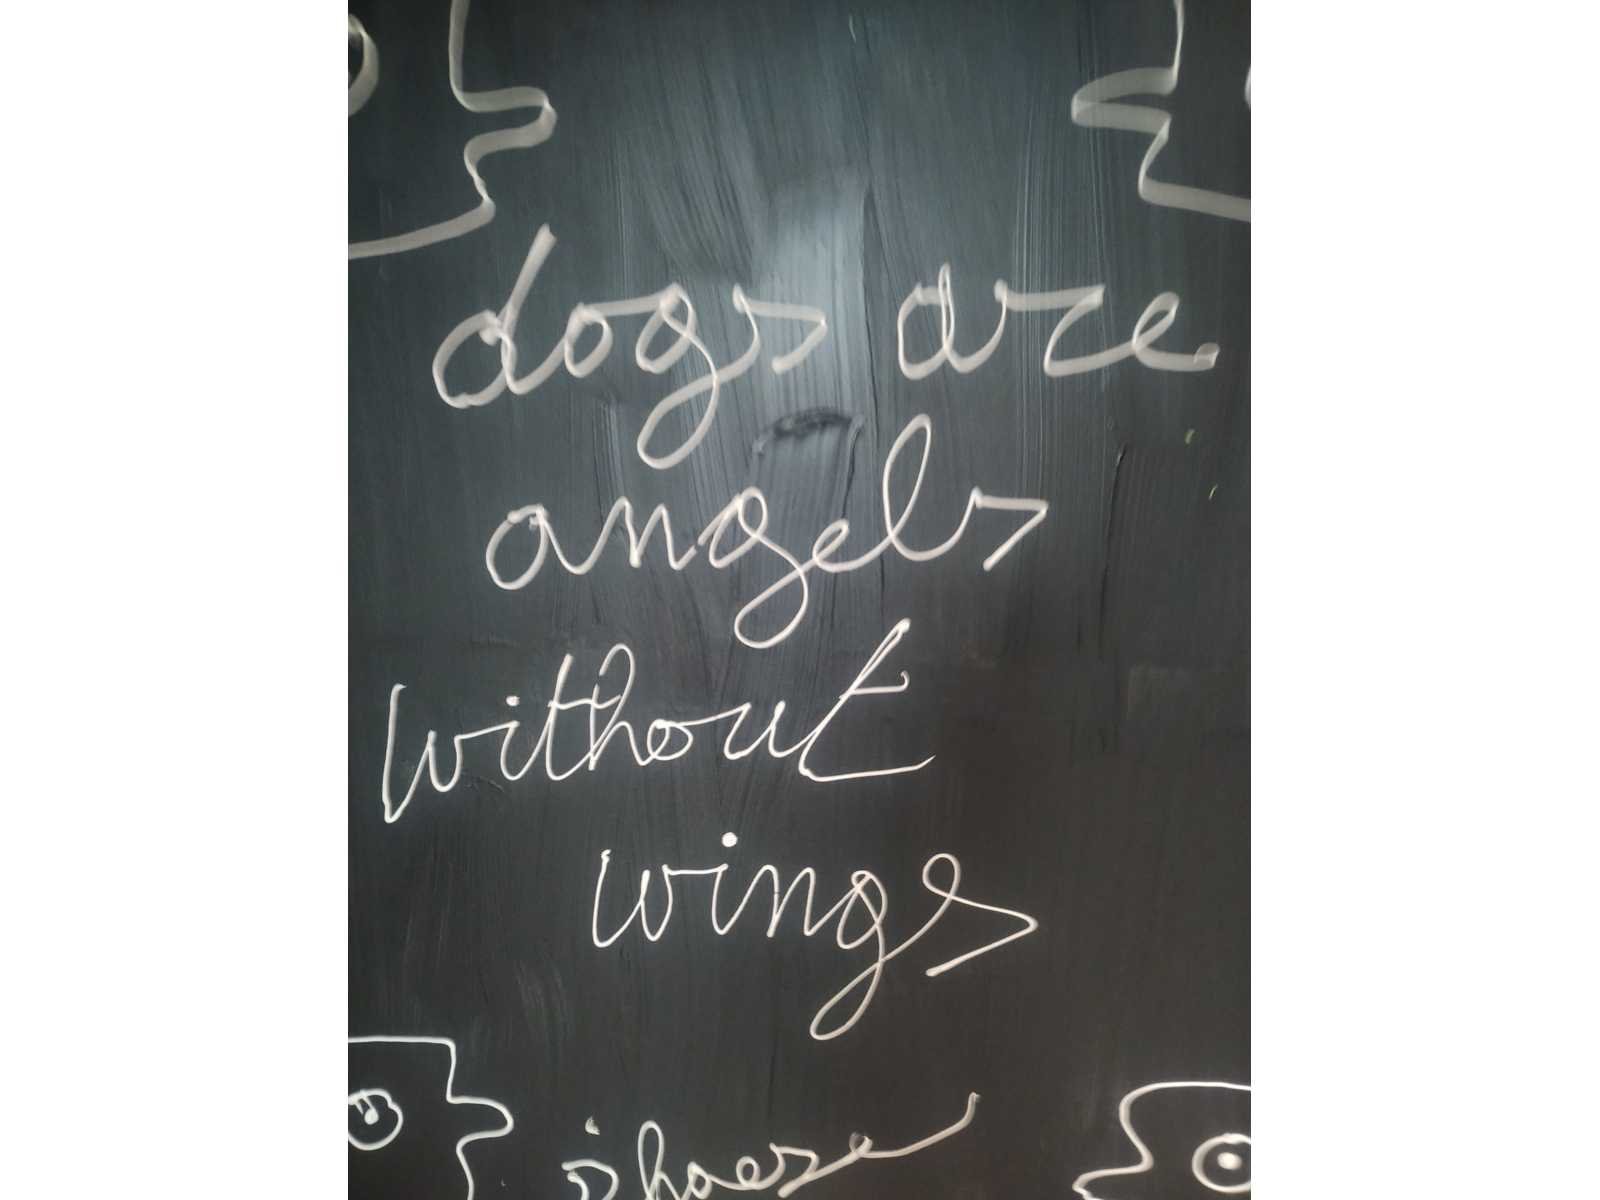 dogs are
angels
without
wings